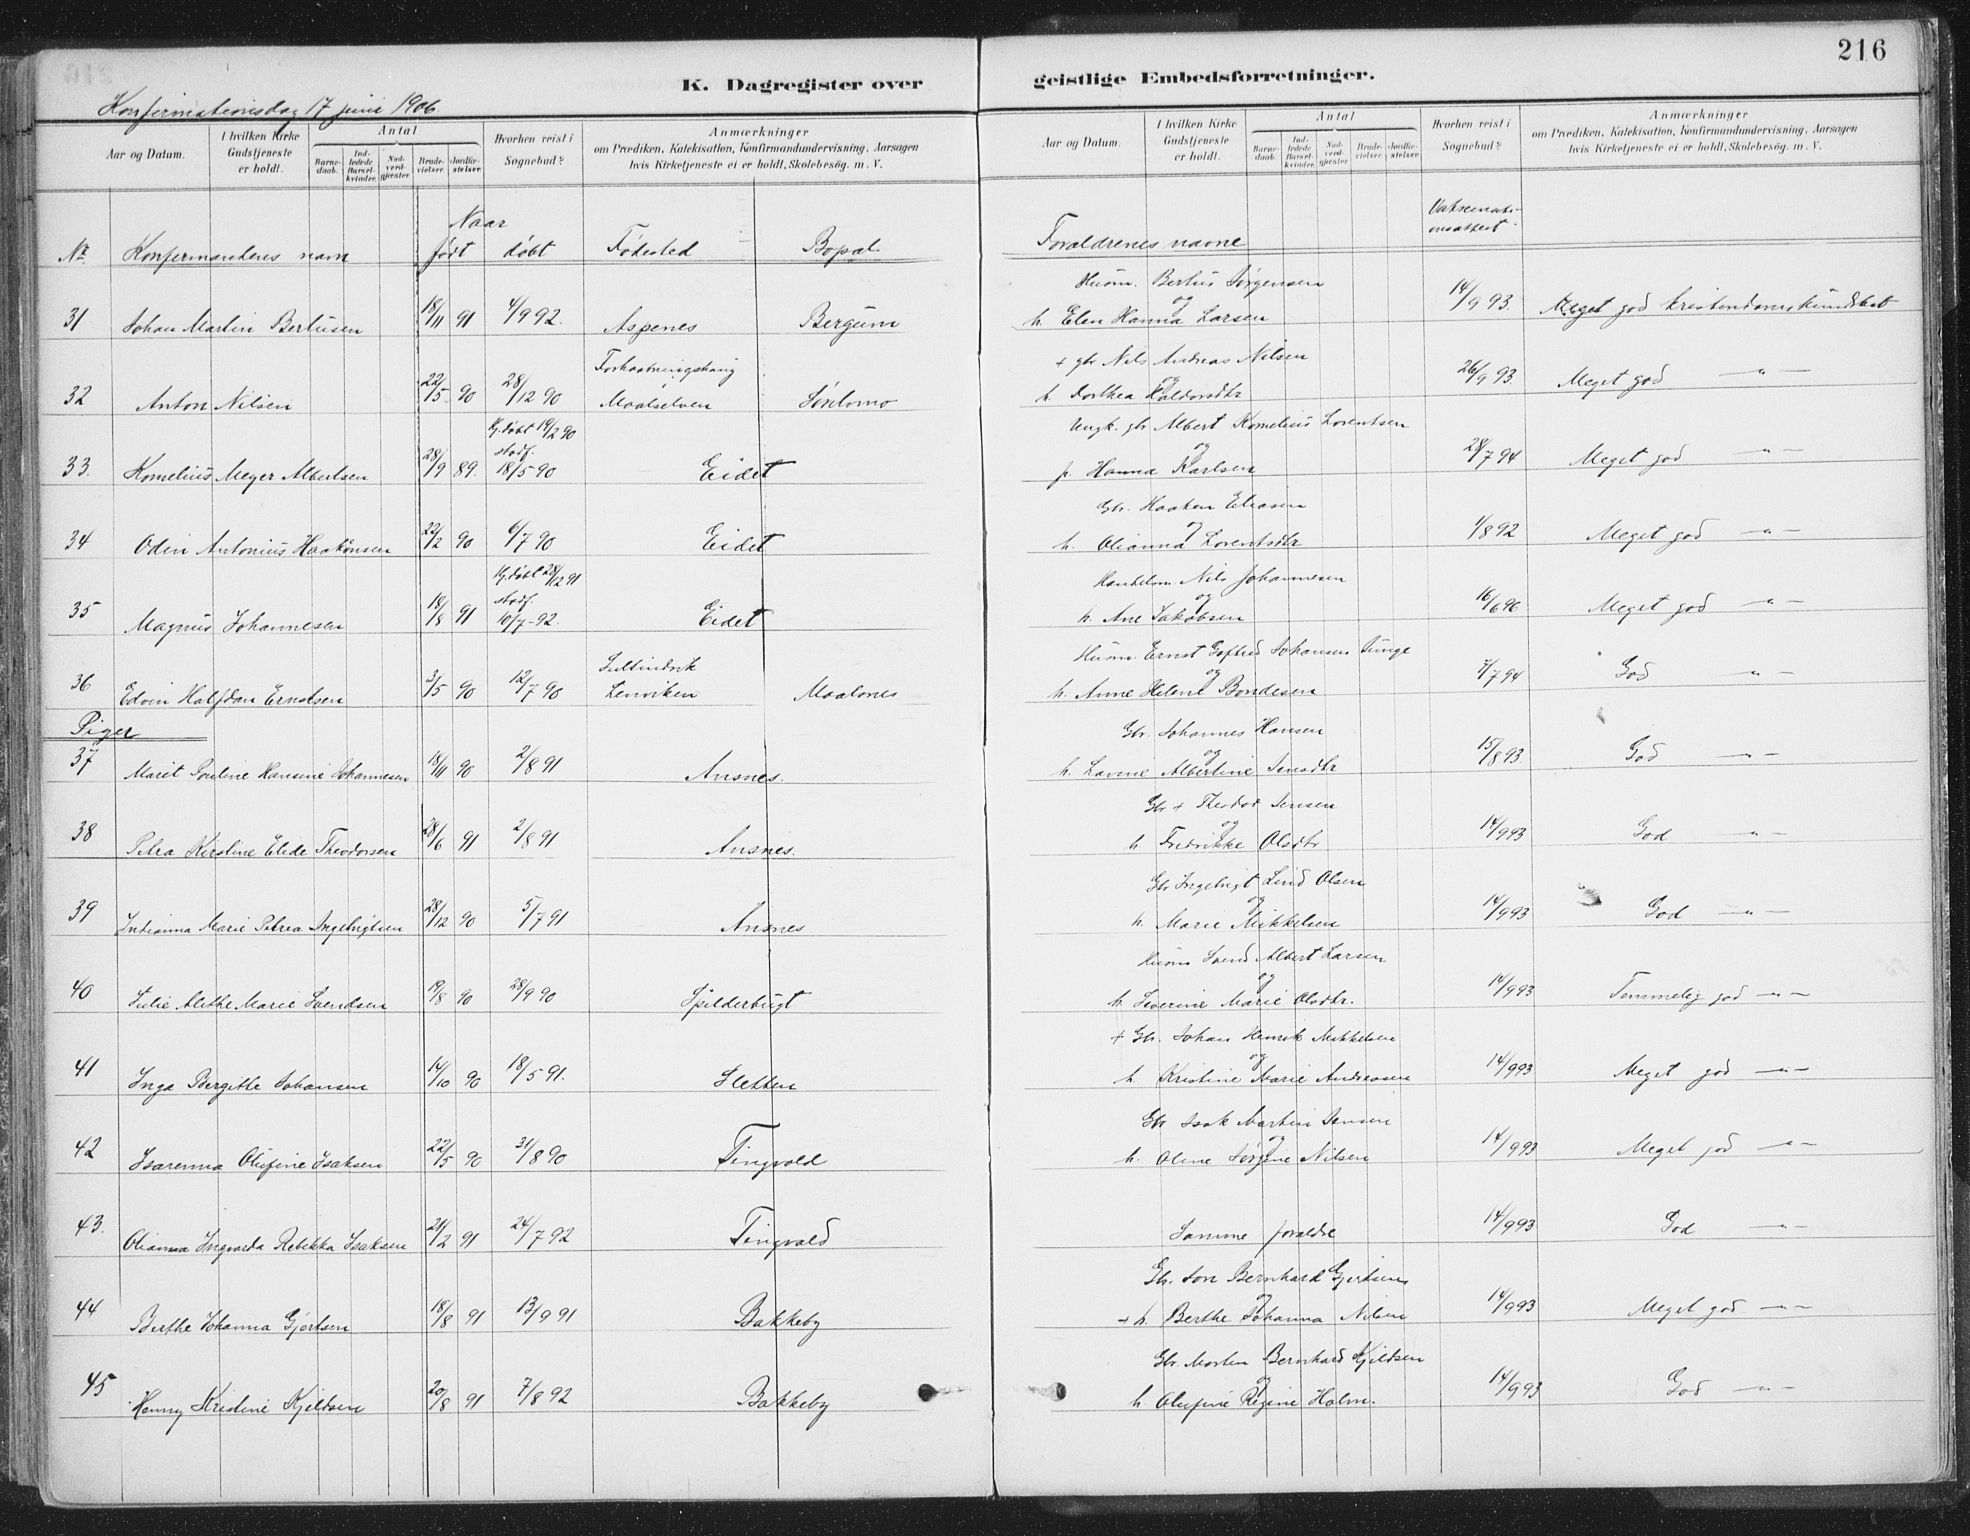 216
K. Dagregister over geistlige Embedsforretninger.
Konfirmationsdag 17 juni 1906.
Aar og Datum. I hvilken Kirke Gudstjeneste er holdt. Antal Barnedaab. Indledede Barselkvinder. Nadverdgjester. Brudevielser. Jordfæstelser. Hvorhen reist i Sognebud? Anmærkninger om Prædiken, Katekisation, Konfirmandundervisning, Aarsagen hvis Kirketjeneste ei er holdt, Skolebesøg. m. V.
Aar og Datum. I hvilken Kirke Gudstjeneste er holdt. Antal Barnedaab. Indledede Barselkvinder. Nadverdgjester. Brudevielser. Jordfæstelser. Hvorhen reist i Sognebud? Anmærkninger om Prædiken, Katekisation, Konfirmandundervisning, Aarsagen hvis Kirketjeneste ei er holdt, Skolebesøg. m. V.
Naar
Nr. Konfirmandens navn født døbt Fødested Bopæl Forældrenes navne
Husm. Bertus Jørgensen og
31 Johan Martin Bertusen 18/11 91 4/9 92. Aspenes Bergum h. Elen Hanna Larsen 14/9 93. Meget god kristendomskundskab
+ gbr Nils Andreas Nilsen og
32 Anton Nilsen 22/5 90 28/12 90 Maalselven h. Dorthea Haldorsdtr 26/9 93. Meget god —"—
Ungk. gbr Albert Kornelius Lorentsen og
Hj. døbt 19/2 90 stadf.
33. Kornelius Meyer Albertsen 28/9 89. 18/5 90 Eidet p. Hanna Karlsen 28/7 94 Meget god —"—
Gbr. Haaken Eliasen og
34 Odin Antonius Haakonsen 22/2 90 6/7 90 Eidet h. Olianna Lorentsdtr 1/8 92 Meget god —"—
Handelsm. Nils Johannesen og
Hj. døbt 28/12 91 stadf.
35 Magnus Johannesen 18/8 91 10/7-92. Eidet h. Ane Jakobsen 16/6 96 Meget god —"—
Husm. Ernst Gotfred Johansen Junge og
36 Edvin Halfdan Ernstsen 3/5 90 12/7 90 Lenviken Maalsnes h. Anne Helene Bondesen 7/7 94 God —"—
Piger
Gbr. Johannes Hansen og
37 Marit Pauline Hansine Johannesen 18/11 90 2/8 91 Ansnes. h. Lavine Albertine Jensdtr 15/8 93. God —"—
Gbr + Theodor Jensen og
38 Petra Kirstine Elide Theodorsen 28/6 91 2/8 91 Ansnes. h Fredrikke Olsdtr 14/9 93 God —"—
Gbr Ingebrigt Lind Olsen og
39 Marie Petrea Ingebrigtsen 28/12 90 5/7 91 Ansnes h. Marie Mikkelsen 14/9 93 God —"—
Husm Svend Albert Larsen og
40 Julie Alethe Marie Svendsen 19/8 90 28/9 90 Spilderbugt h. Severine Marie Olsdtr. 14/9 93 Temmelig god —"—
+ Gbr. Johan Henrik Mikkelsen og
41 Inga Bergitte Johansen 14/10 90 18/5 91. Sletten h. Kristine Marie Andreasen 14/9 93 Meget god —"—
Gbr Isak Martin Jensen og
42 Isarenna Olufine Isaksen 22/5 90 31/8 90 Tingvold h. Oline Jørgine Nilsen 14/9 93 Meget god —"—
43. Olianna Ingvarda Rebekka Isaksen 21/2 91 24/7 92 Tingvold Samme forældre 14/9 93 God —"—
Gbr. Jon Bernhard Gjertsen og
44 Berthe Johanna Gjertsen 18/8 91 13/9 91 Bakkeby + h. Berthe Johanna Nilsen 14/9 93 Meget god —"—
Gbr. Morten Bernhard Kjeldsen og
45 Henny Kristine Kjeldsen 20/8 91 7/8 92 Bakkeby h. Olufine Regine Holm. 14/9 93 God —"—